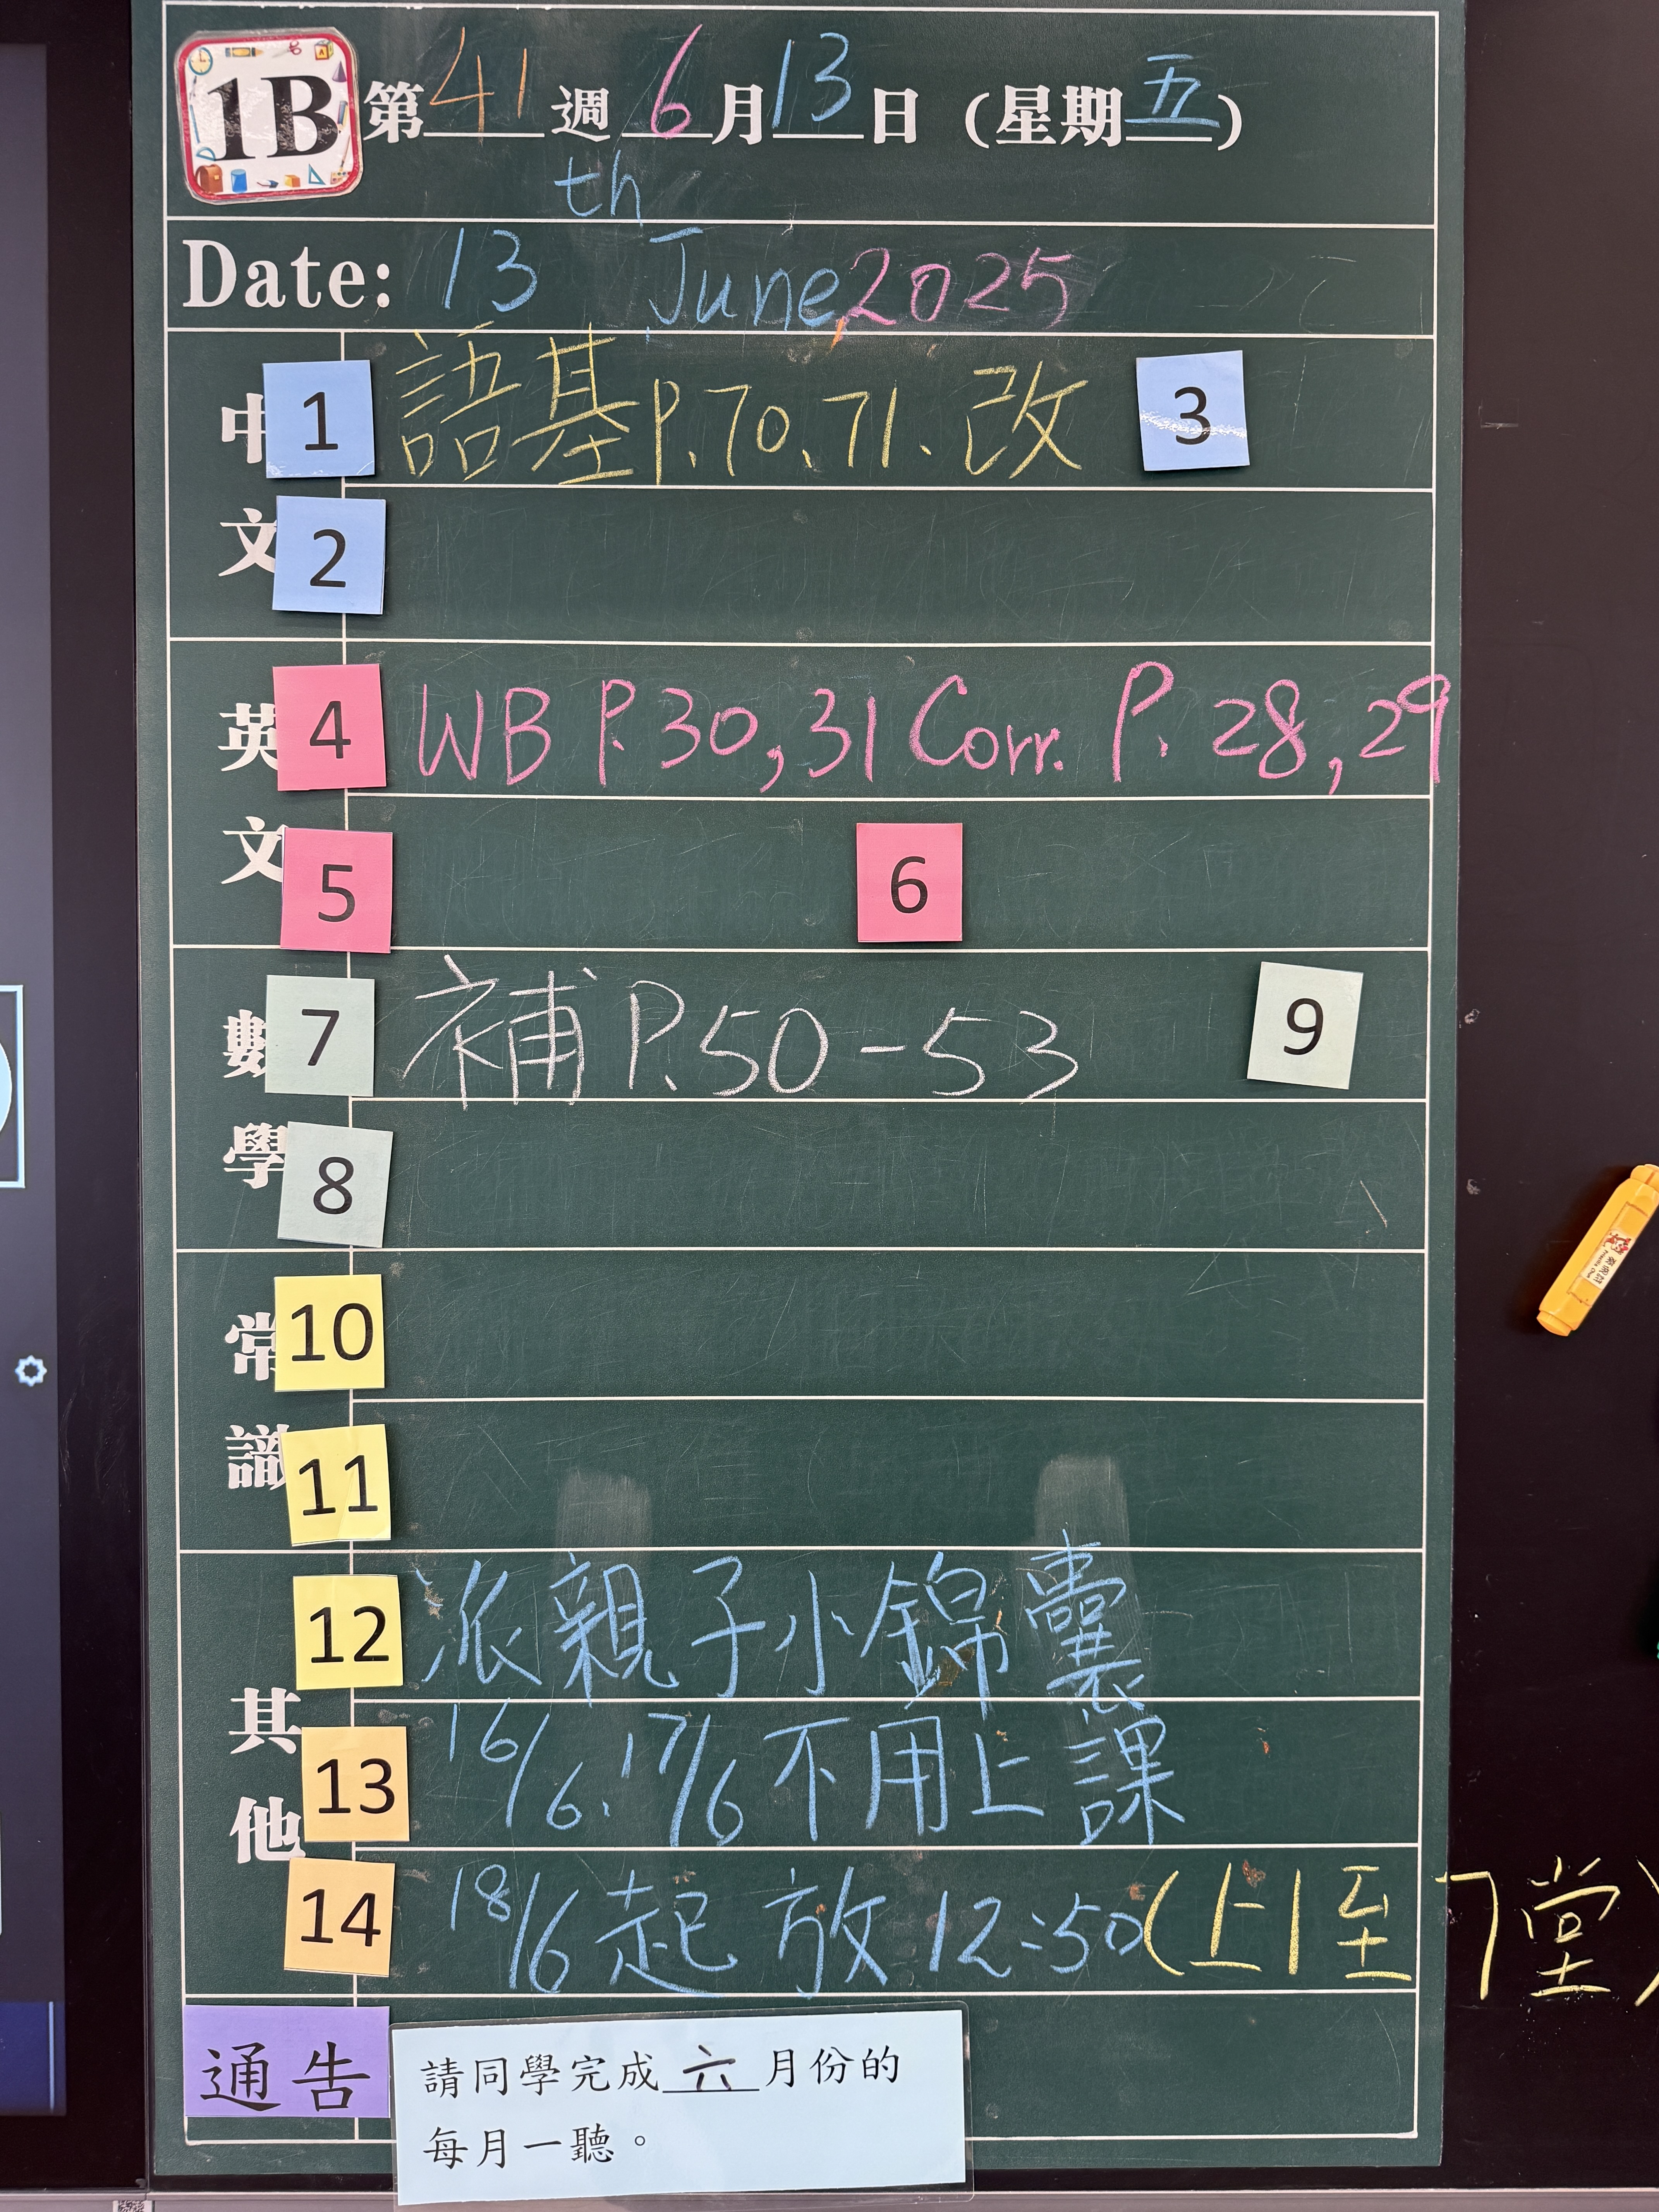 1B 第41週 6月13日 (星期五)
Date: 13th June, 2025
中文
1 語基P.70、71、改 3
2
英文
4 WB P.30,31 Corr. P. 28,29
5 6
數學
7 補 P.50-53 9
8
常識
10
11
其他
12 派親子小錦囊
13 16/6、17/6 不用上課
14 18/6 起 放 12:50 (上1至7堂)
通告
請同學完成六月份的
每月一聽。